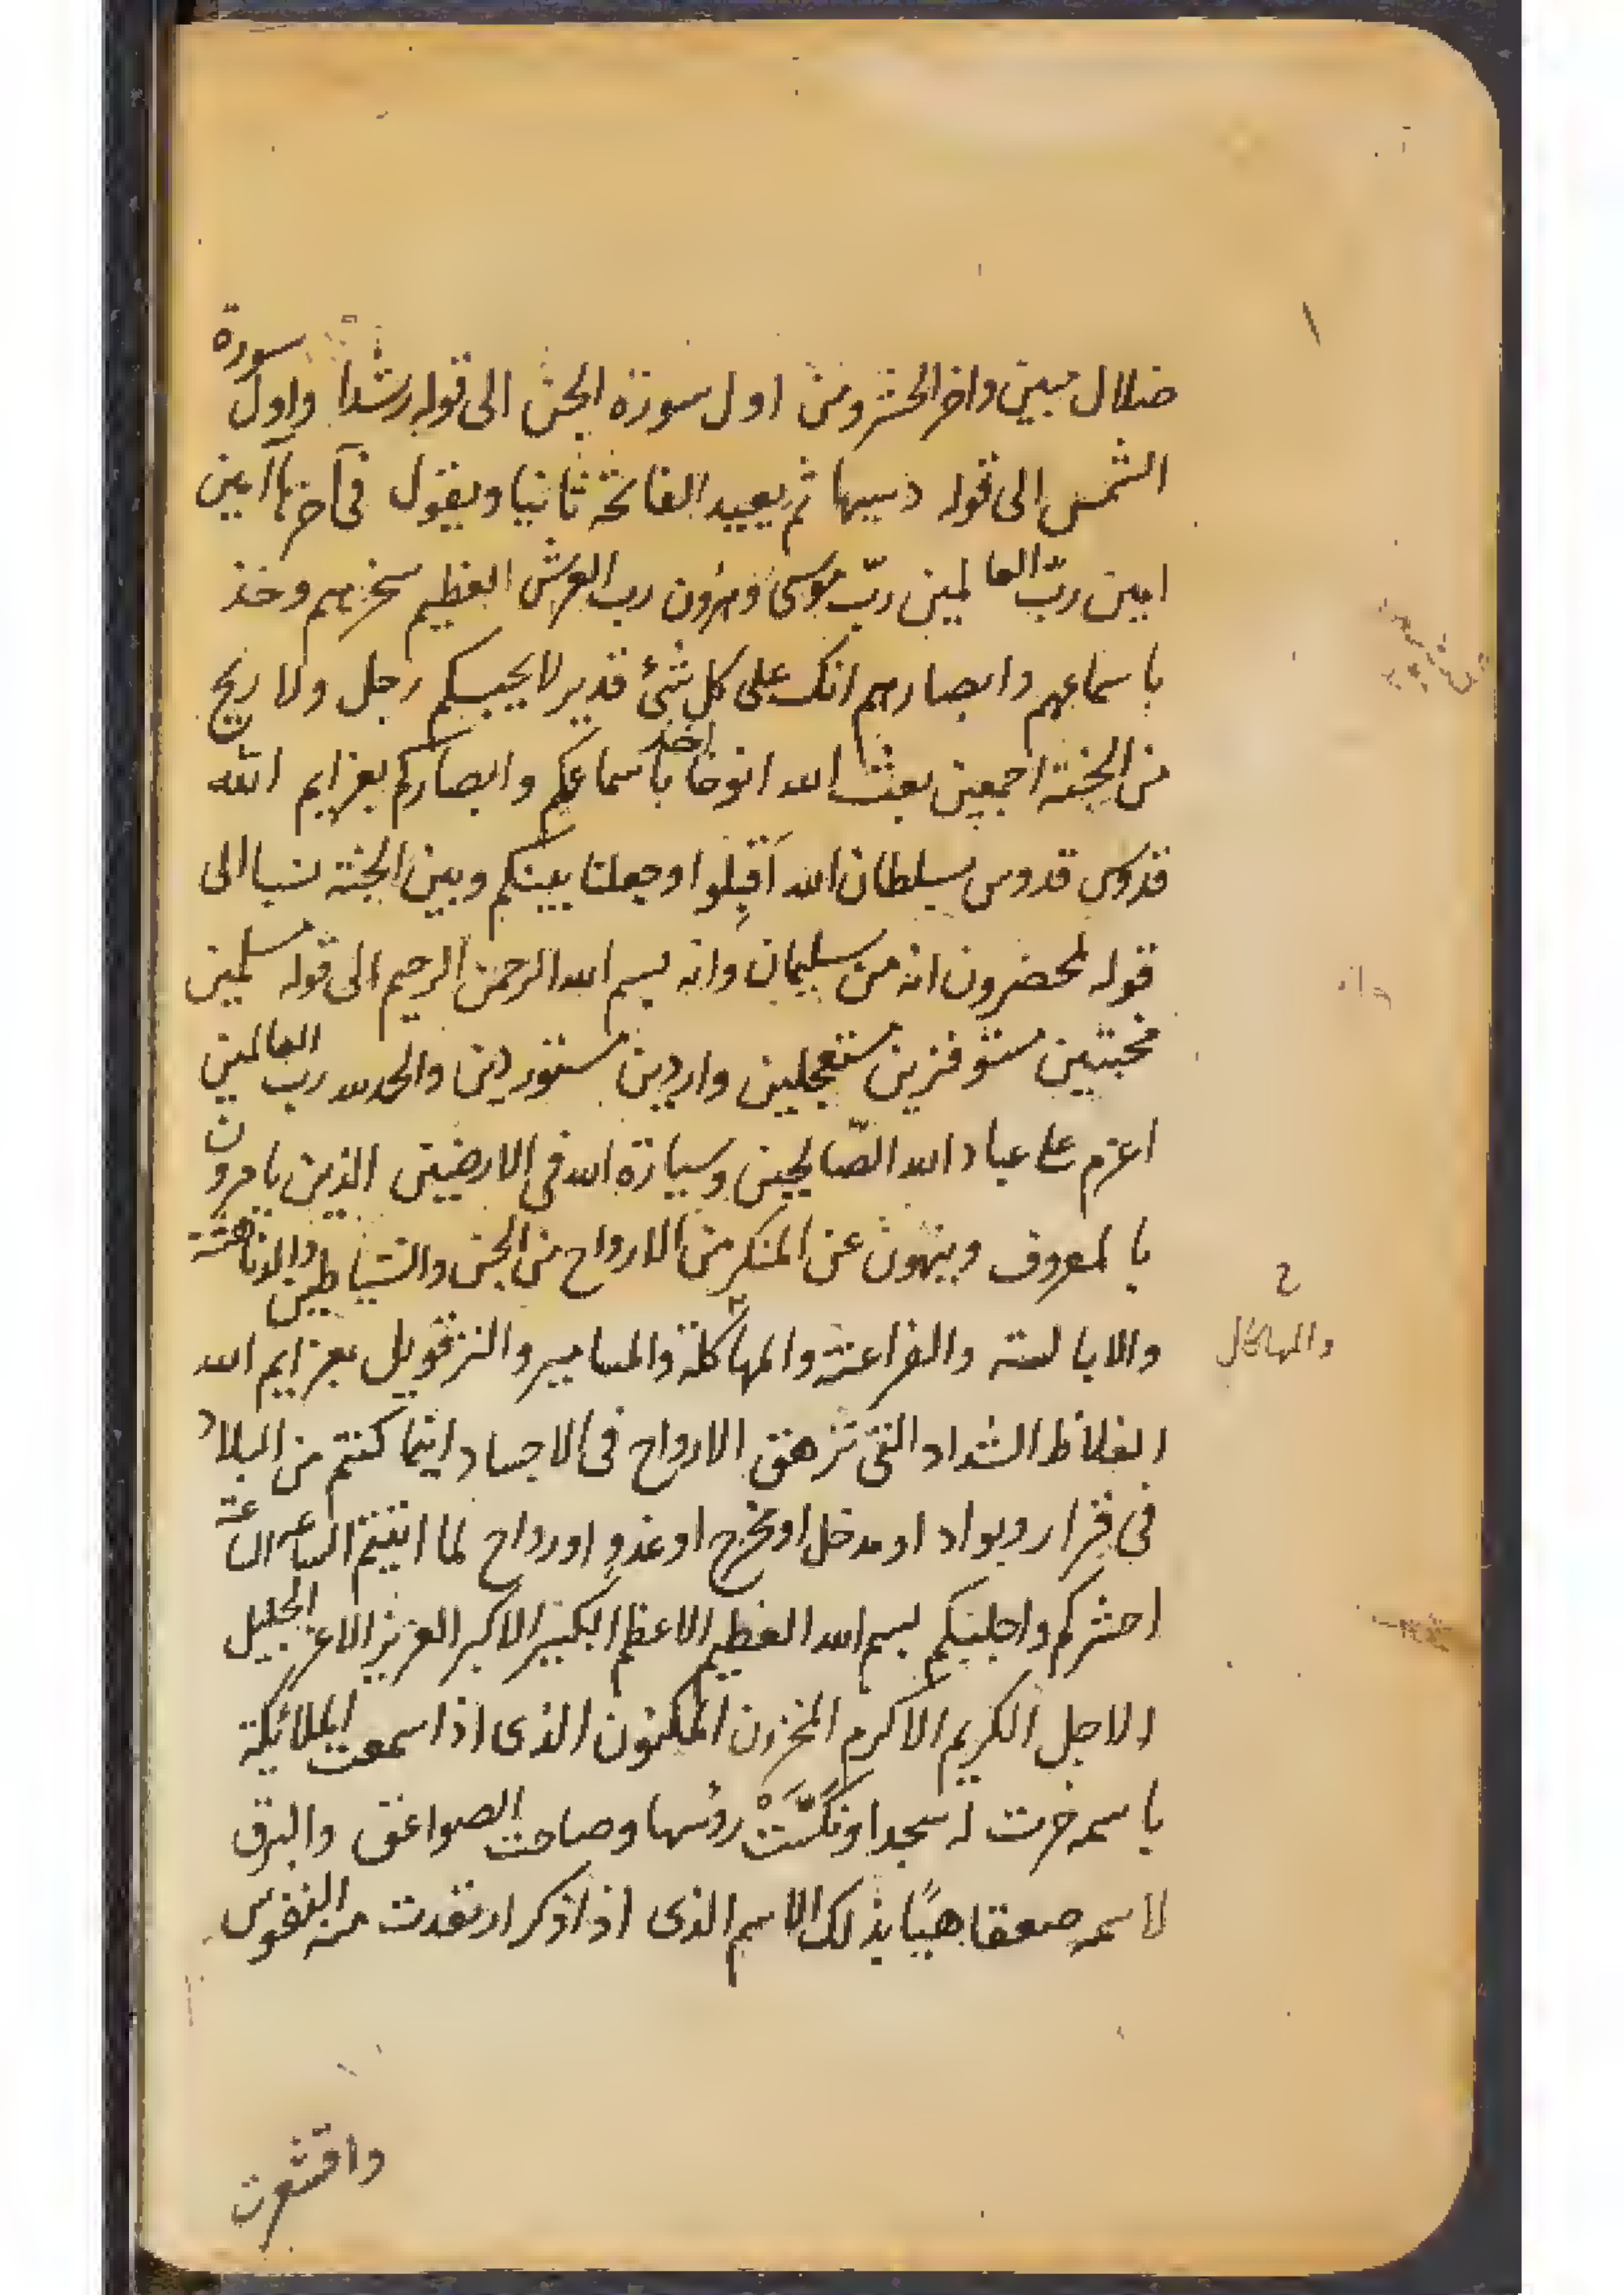 ضلال مبين واخر الحشر ومن اول سورة الجن الى قوله رشدا واول سورة
الشمس الى قوله دسيها ثم يعيد الفاتحة ثانيا ويقول فى آخرها آمين
امين ربّ العالمين ربّ موسى وهرون رب العرش العظيم سخرهم وخذ
باسماعهم وابصارهم انك على كل شئ قدير لا يحبسكم رجل ولا ريح
من الجنة اجمعين بعث الله انوخا اخذ باسماعكم وابصاركم بعزايم الله
قدوس قدوس بسلطان الله اَقبِلوا وجعلنا بينكم وبين الجنة نسبا الى
قوله لمحضرون انه من سليمان وانه بسم الله الرحمن الرحيم الى قوله مسلمين
مخبتين مستوفزين مستعجلين واردين مستوردين والحمد لله رب العالمين
اعزم على عباد الله الصّالحين وسيارة الله فى الارضين الذين يامرون
بالمعروف وينهون عن المنكر من الارواح من الجن والشياطين
والابالسة والفراعنة والمهاكلة والمسامير والنزقويل بعزايم الله
والمهاكال
الغلاظ الشداد التى تزهق الارواح فى الاجساد اينما كنتم من البلاد
فى قرار وبواد او مدخل او مخرج او غدو او رواح لما اتيتم الساعه الساعة
احشركم واجلبكم بسم الله العظيم الاعظم الكبير الاكبر العزيز الاعز الجليل
الاجل الكريم الاكرم المخزون المكنون الذى اذا سمعت الملائكة
باسمه خرت له سجدا ونكّسَتْ رؤسها وصاحت الصواعق والبرق
لاسمه صعقا هيّبًا بذلك الاسم الذى اذا ذكر ارتعدت منه النفوس
واقشعرت